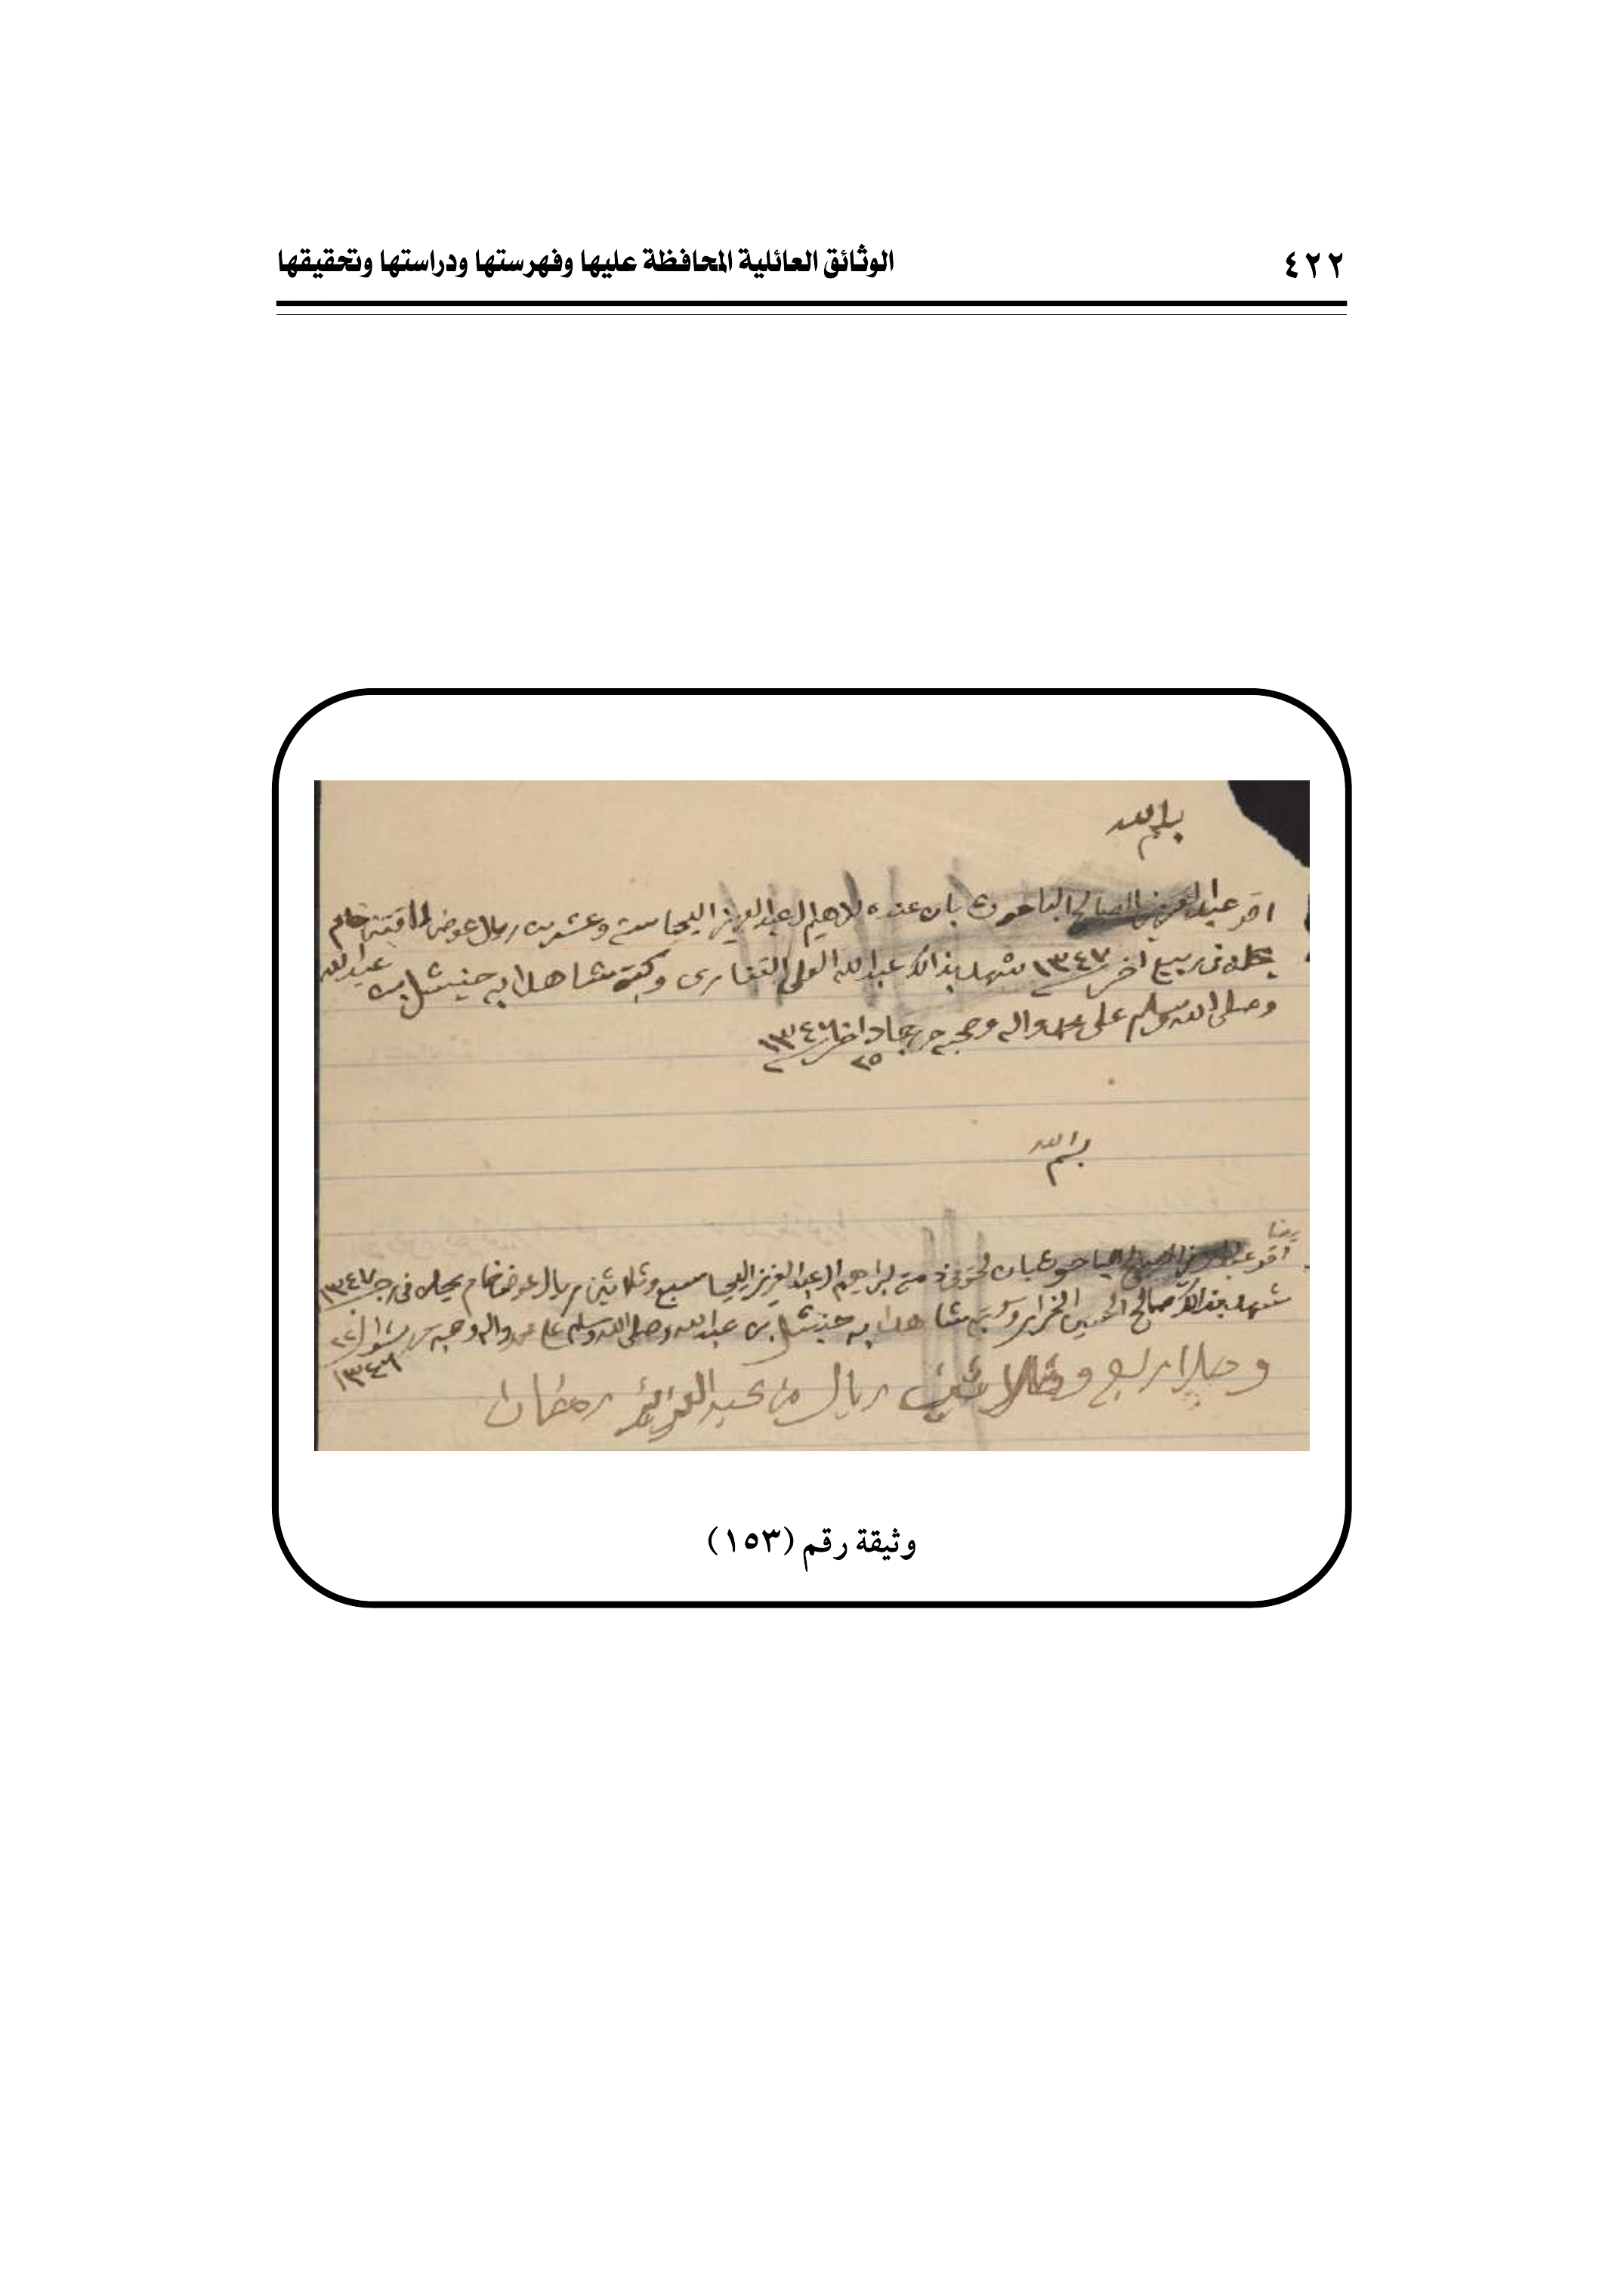 ٤٢٢
الوثائق العائلية المحافظة عليها وفهرستها ودراستها وتحقيقها
بسم الله
اقر عبد العزيز الصالح الباحوث بان عنده لابراهيم العبد العزيز اليحيا ستة وعشرين ريال عوض خام
يحلن في ربيع اخر ١٣٤٧ شهد بذالك عبدالله العلي القفاري وكتبه شاهدا به حنيشل بن عبدالله
وصلى الله وسلم على محمد واله وصحبه جماد اخر ١٣٤٦
٢٥
بسم الله
ايضا
اقر عبد العزيز الصالح الباحوث بان في ذمته لبراهيم العبد العزيز اليحيا سبع وثلاثين ريال عوض خام يحلن في ١٣٤٧
شهد بذالك صالح الحسين الخراز وكتبه شاهدا به حنيشل بن عبدالله وصلى الله وسلم على محمد واله وصحبه شوال
١٣٤٦
وصل اربع وثلاثين ريال من عبد العزيز رمضان
وثيقة رقم (١٥٣)